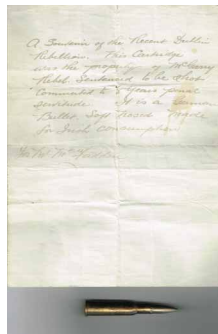 A Souvenir of the Recent Dublin
Rebellion. This Cartridge
was the property of McGarry
Rebel. Sentenced to be shot
Commuted to 8 years penal
servitude. It is a
Bullet Soft Nosed Made
for Irish consumption